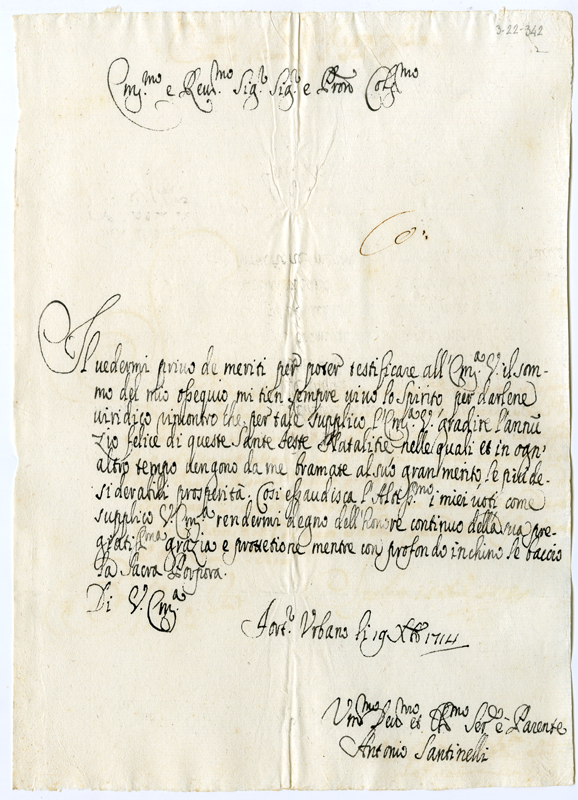 3-22-342
2
Em.mo e Reu.mo Sig.r Sig.r e Pron Col.mo
Co:
Il uedermi priuo de meriti per poter testificare all'Em.a V. il som-
mo del mio osequio mi tien sempre uiuo lo spirito per darlene
uiridico rincontro che per tale supplico l'Em.a V. gradire l'annū
zio felice di queste sante feste Natalitie nelle quali et in ogn'
altro tempo uengono da me bramate al suo gran merito le più de-
siderabili prosperità. Cosi esaudisca l'Altiss.mo i miei uoti come
supplico V. Em.a rendermi degno dell'honore continuo della sua pre-
giatis.ma grazia e protetione mentre con profondo inchino le baccio
la Sacra Porpora.
Di V. Em.a
Fort. Urbano li 19 Xbre 1714
Um.mo Deu.mo et Obl.mo Ser.e e Parente
Antonio Santinelli